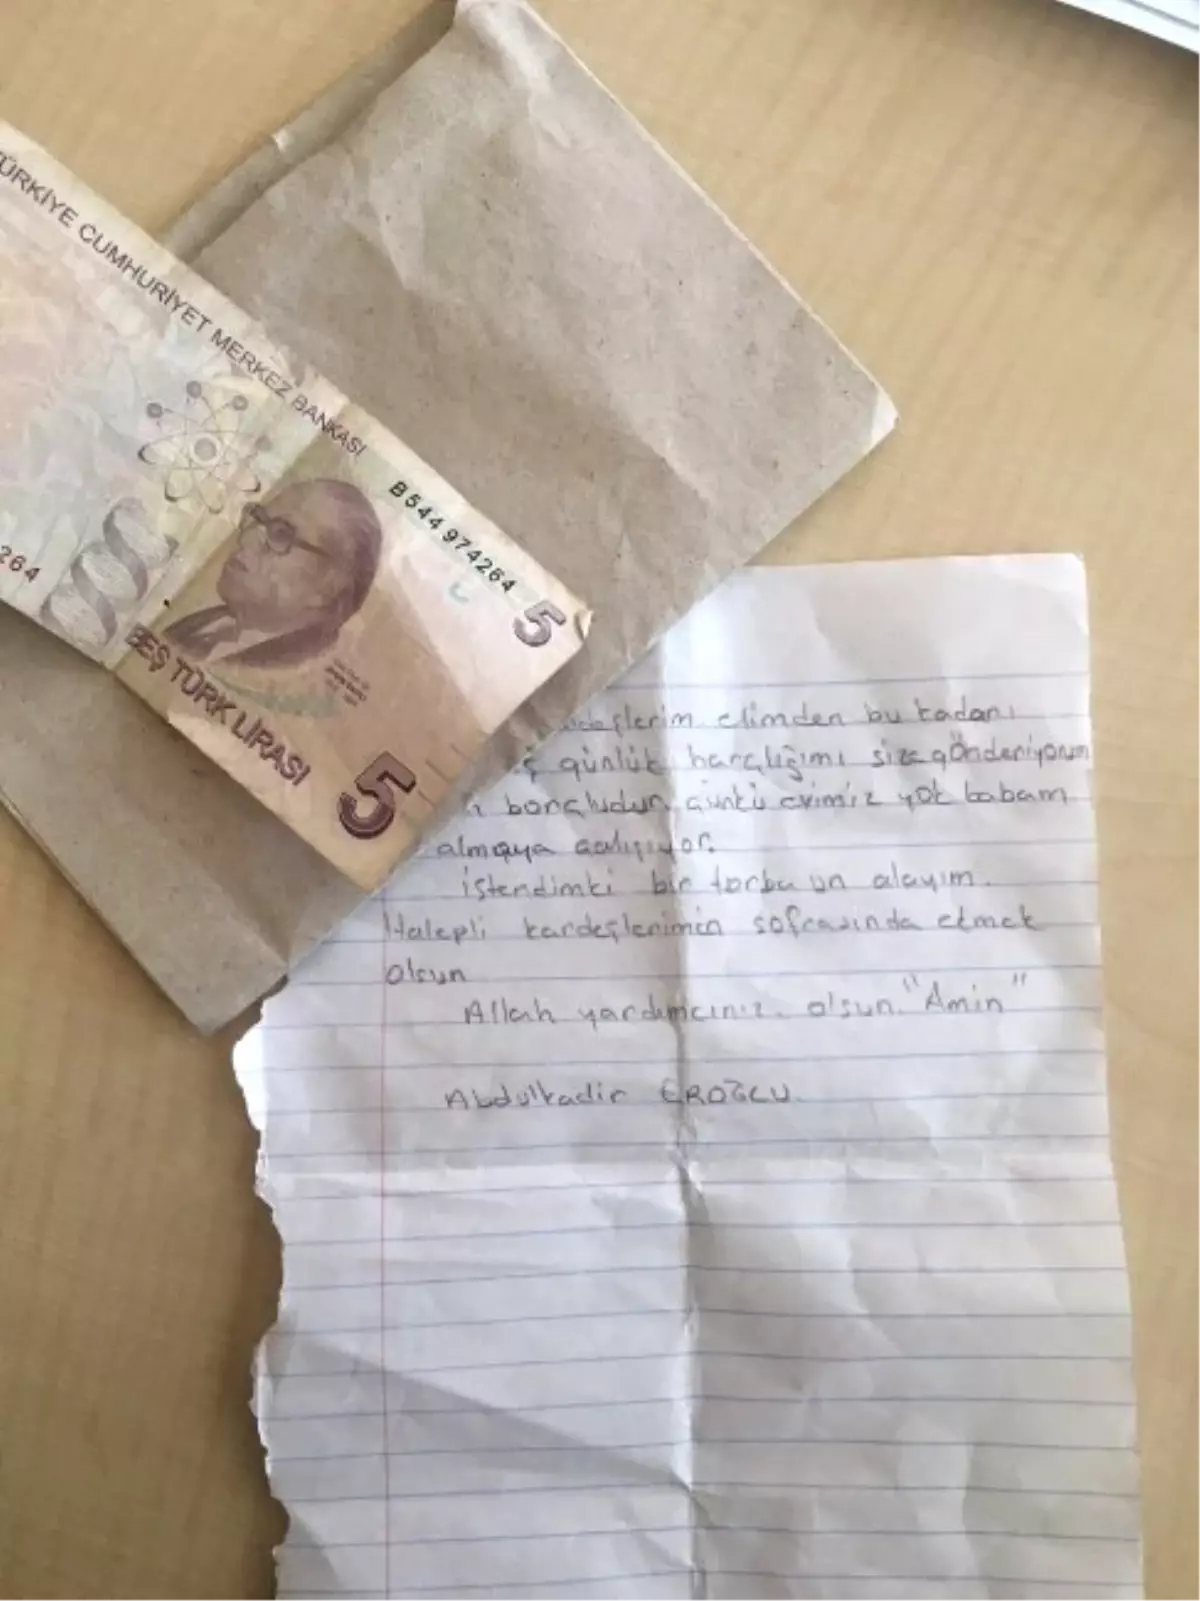 TÜRKİYE CUMHURİYET MERKEZ BANKASI
B544 974264
5
264
BEŞ TÜRK LİRASI
5
elimden bu kadarı
günlük harçlığımı size gönderiyorum
borçludur çünkü evimiz yok babam
almaya çalışıyor.
istendimki bir torba un alayım.
Halepli kardeşlerimin sofrasında ekmek
olsun
Allah yardımcınız olsun. "Amin"
Abdulkadir EROĞLU